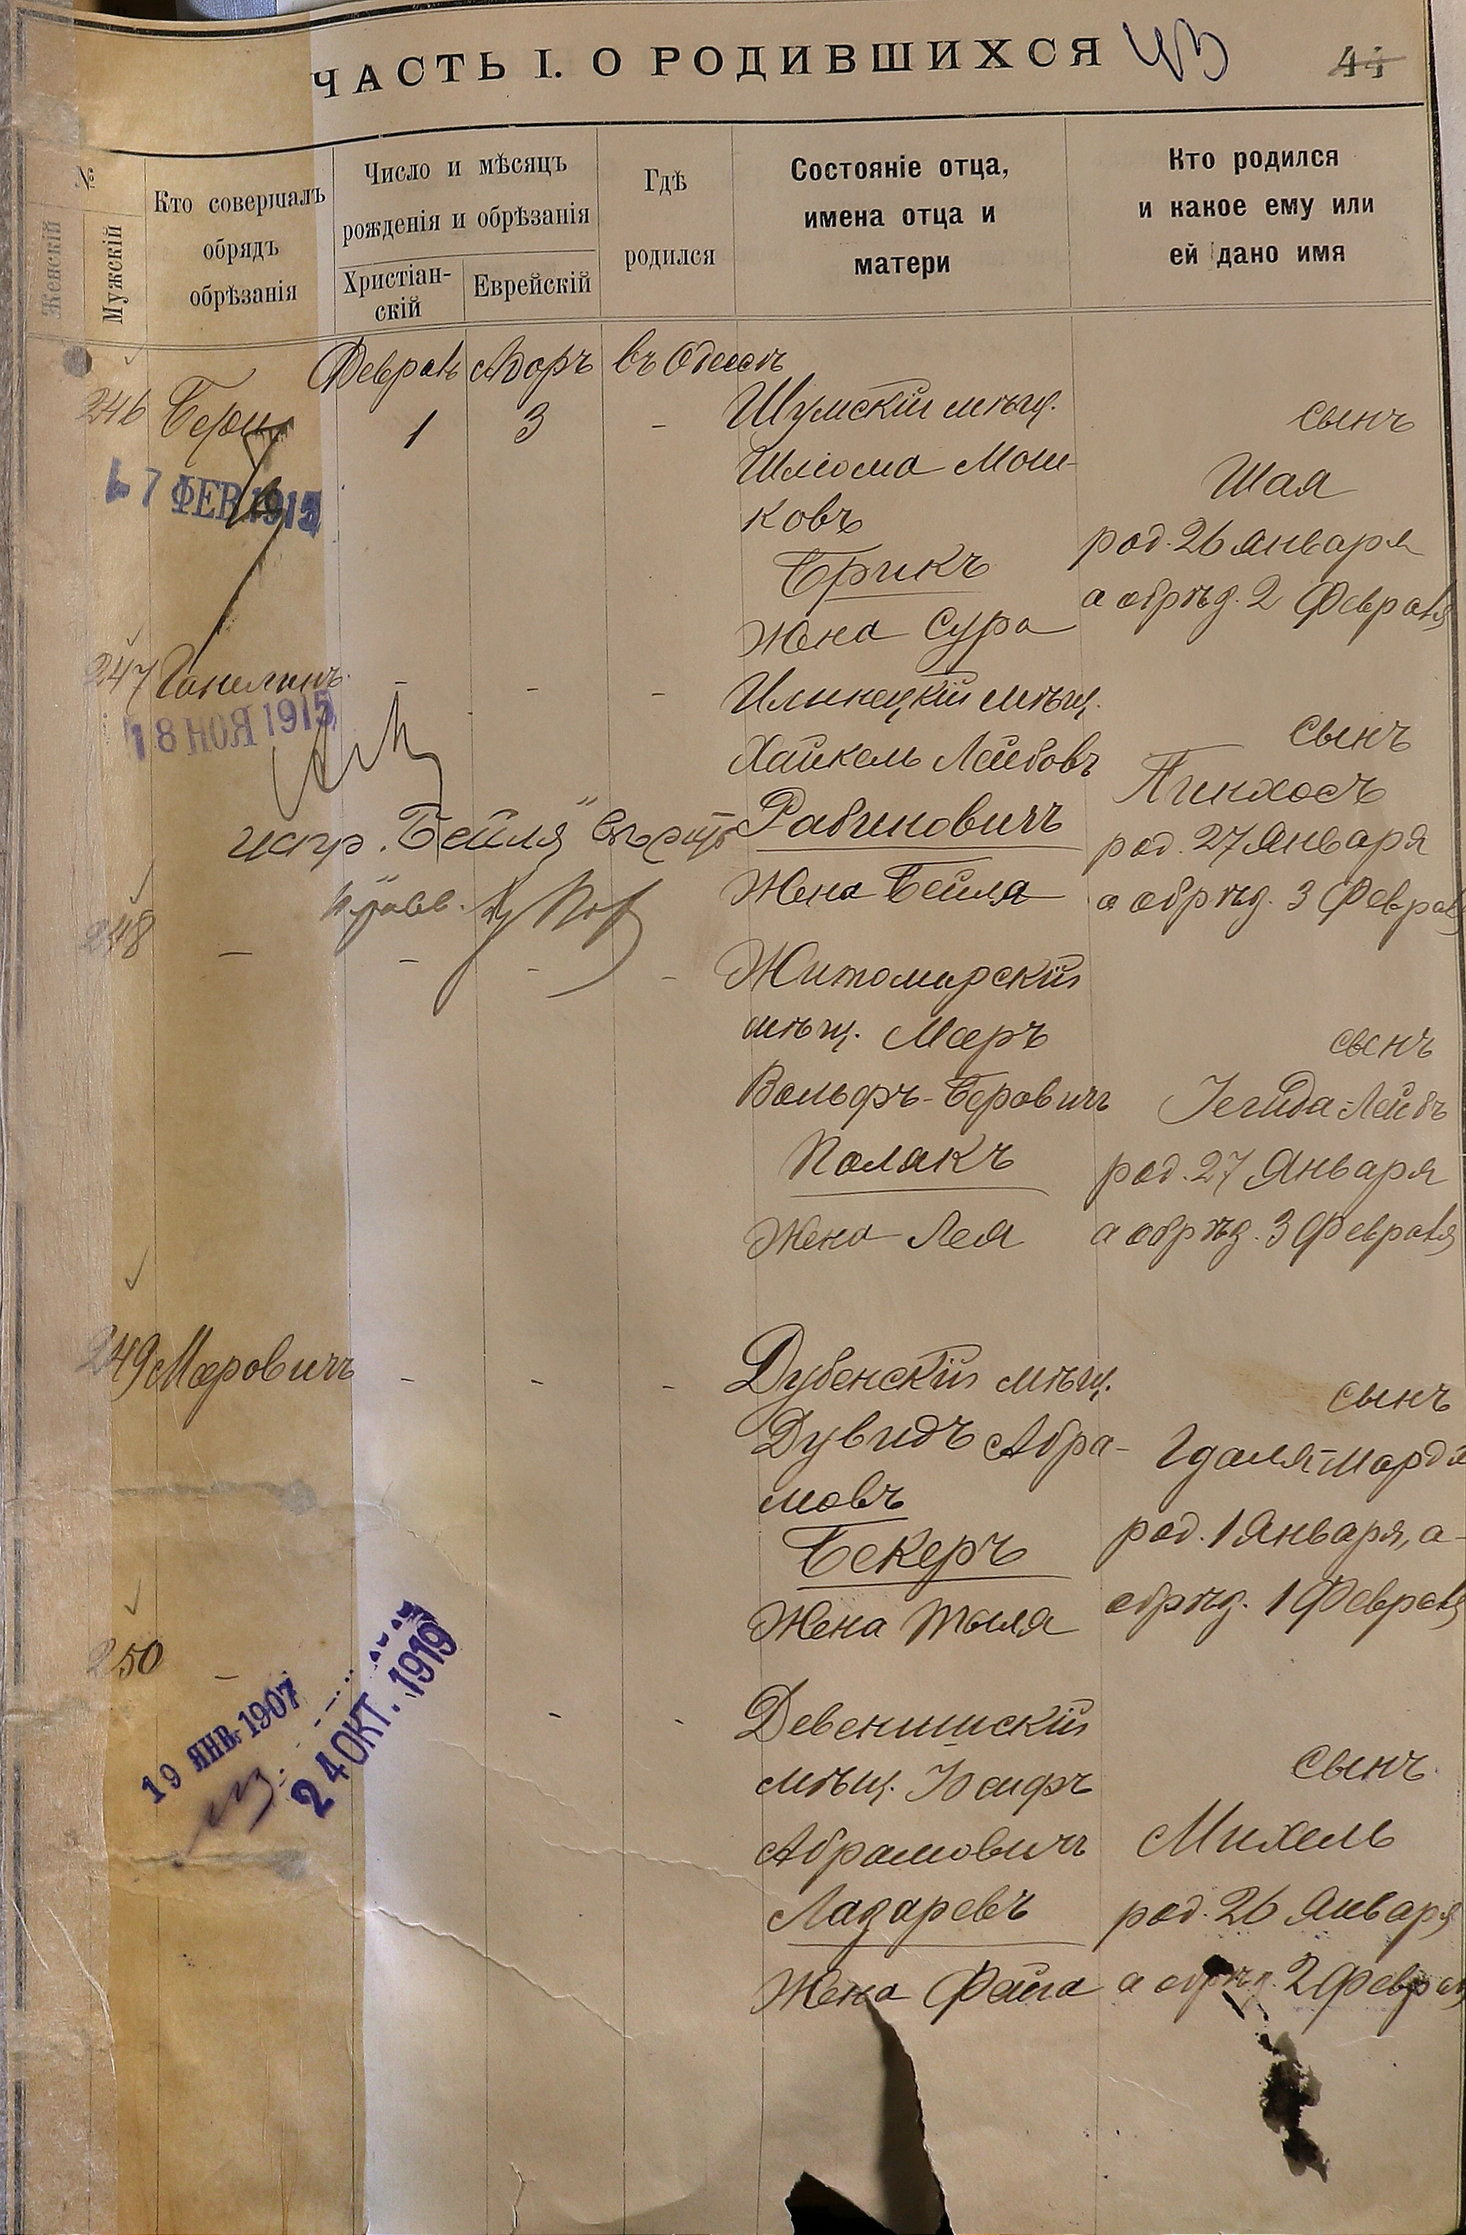 ЧАСТЬ I. О РОДИВШИХСЯ 43 44
№
Женскій
Мужскій
Кто совершалъ
обрядъ
обрѣзанія
Число и мѣсяцъ
рожденія и обрѣзанія
Христіан-
скій
Еврейскій
Гдѣ
родился
Состояніе отца,
имена отца и
матери
Кто родился
и какое ему или
ей дано имя
Адоръ въ Одессѣ
246 1 3 - Шумскій мѣщ.
Шлема Мош-
ковъ
Брикъ
Жена Сура
сынъ
Шая
род. 26 Января
а обрѣз. 2 Февраля
7 ФЕВ 1915
247 - - - Илинецкій мѣщ.
Хайкель Лейбовъ
Рабиновичъ
Жена Бейля
сынъ
Пинхосъ
род. 27 Января
а обрѣз. 3 Февраля
18 НОЯ 1915
испр. „Бейля“
248 - - - - Житомирскій
мѣщ. Меръ
Вольфъ-Беровичъ
Полякъ
Жена Лея
сынъ
Іегуда-Лейбъ
род. 27 Января
а обрѣз. 3 Февраля
249 Меровичъ - - - Дубенскій мѣщ.
Дувидъ Абра-
мовъ
Бекеръ
Жена Тыля
сынъ
род. 1 Января, а
обрѣз. 1 Февраля
250 - - - Девенишскій
мѣщ. Іосифъ
Абрамовичъ
Лазаревъ
Жена Фейга
сынъ
Михель
род. 26 Января
а обрѣз. 2 Февраля
19 ЯНВ. 1907
24 ОКТ. 1919